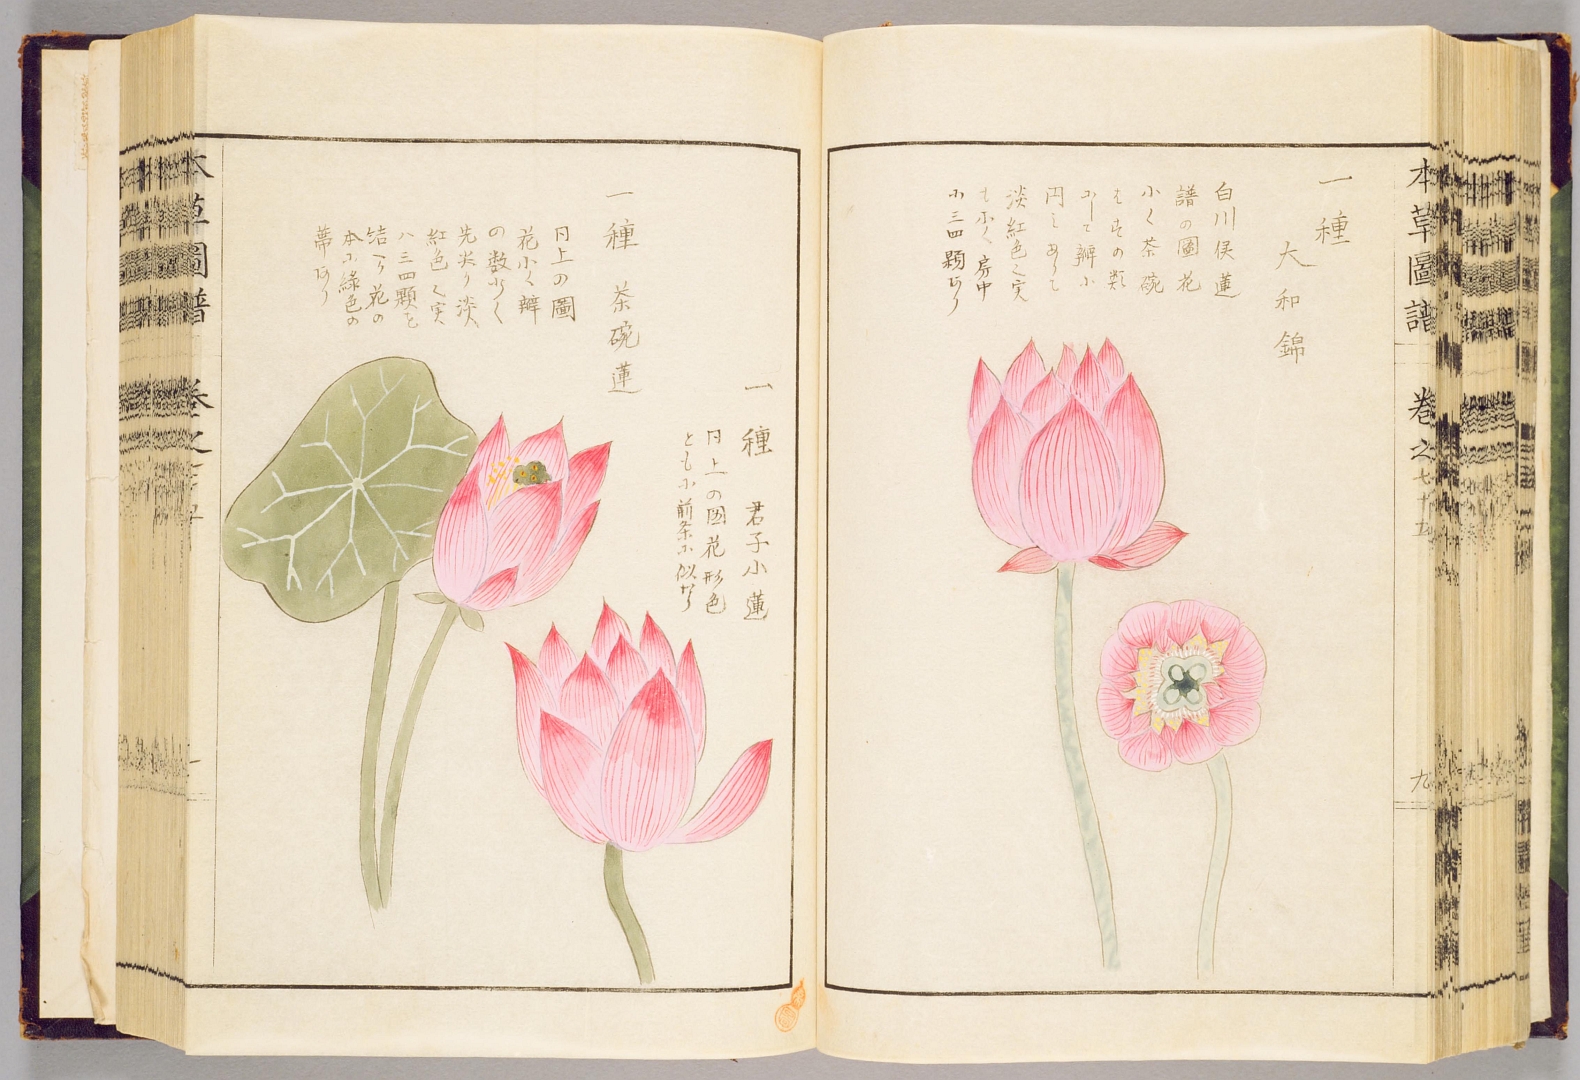 本草圖譜 巻之七十五
九
一種 大和錦
白川侯蓮
譜の圖花
小く茶碗
はすの類
にして瓣小
円ミありて
淡紅色之実
も小く房中
ニ三四顆あり
一種 君子小蓮
円上の図花形色
ともに前条に似たり
一種 茶碗蓮
円上の圖
花小く瓣
の数少く
先尖り淡
紅色く実
ハ三四顆を
結へり花の
本に緑色の
蒂あり
本草圖譜 巻之